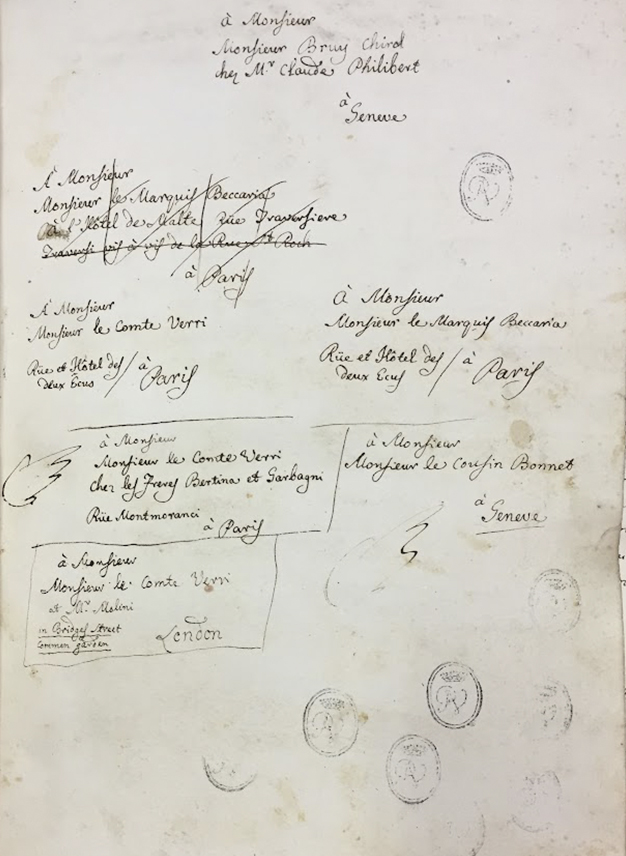 à Monsieur
Monsieur Bruy Chirol
chez Mr. Claude Philibert
à
Geneve
À Monsieur
Monsieur le Marquis Beccaria
à l'Hôtel de Malte rue Traversiere
Traversi vis à vis de la Rue St. Roch
à Paris
À Monsieur
Monsieur le Comte Verri
Rüe et Hôtel des
deux Ecus / à
Paris
À Monsieur
Monsieur le Marquis Beccaria
Rüe et Hôtel des
deux Ecus / à
Paris
à Monsieur
Monsieur le Comte Verri
chez les Freres Bertina et Garbagni
Rüe Montmoranci
à Paris
à Monsieur
Monsieur le Cousin Bonnet
à
Geneve
à Monsieur
Monsieur le Comte Verri
et Mr. Molini
in Bridges Street
Common garden
London